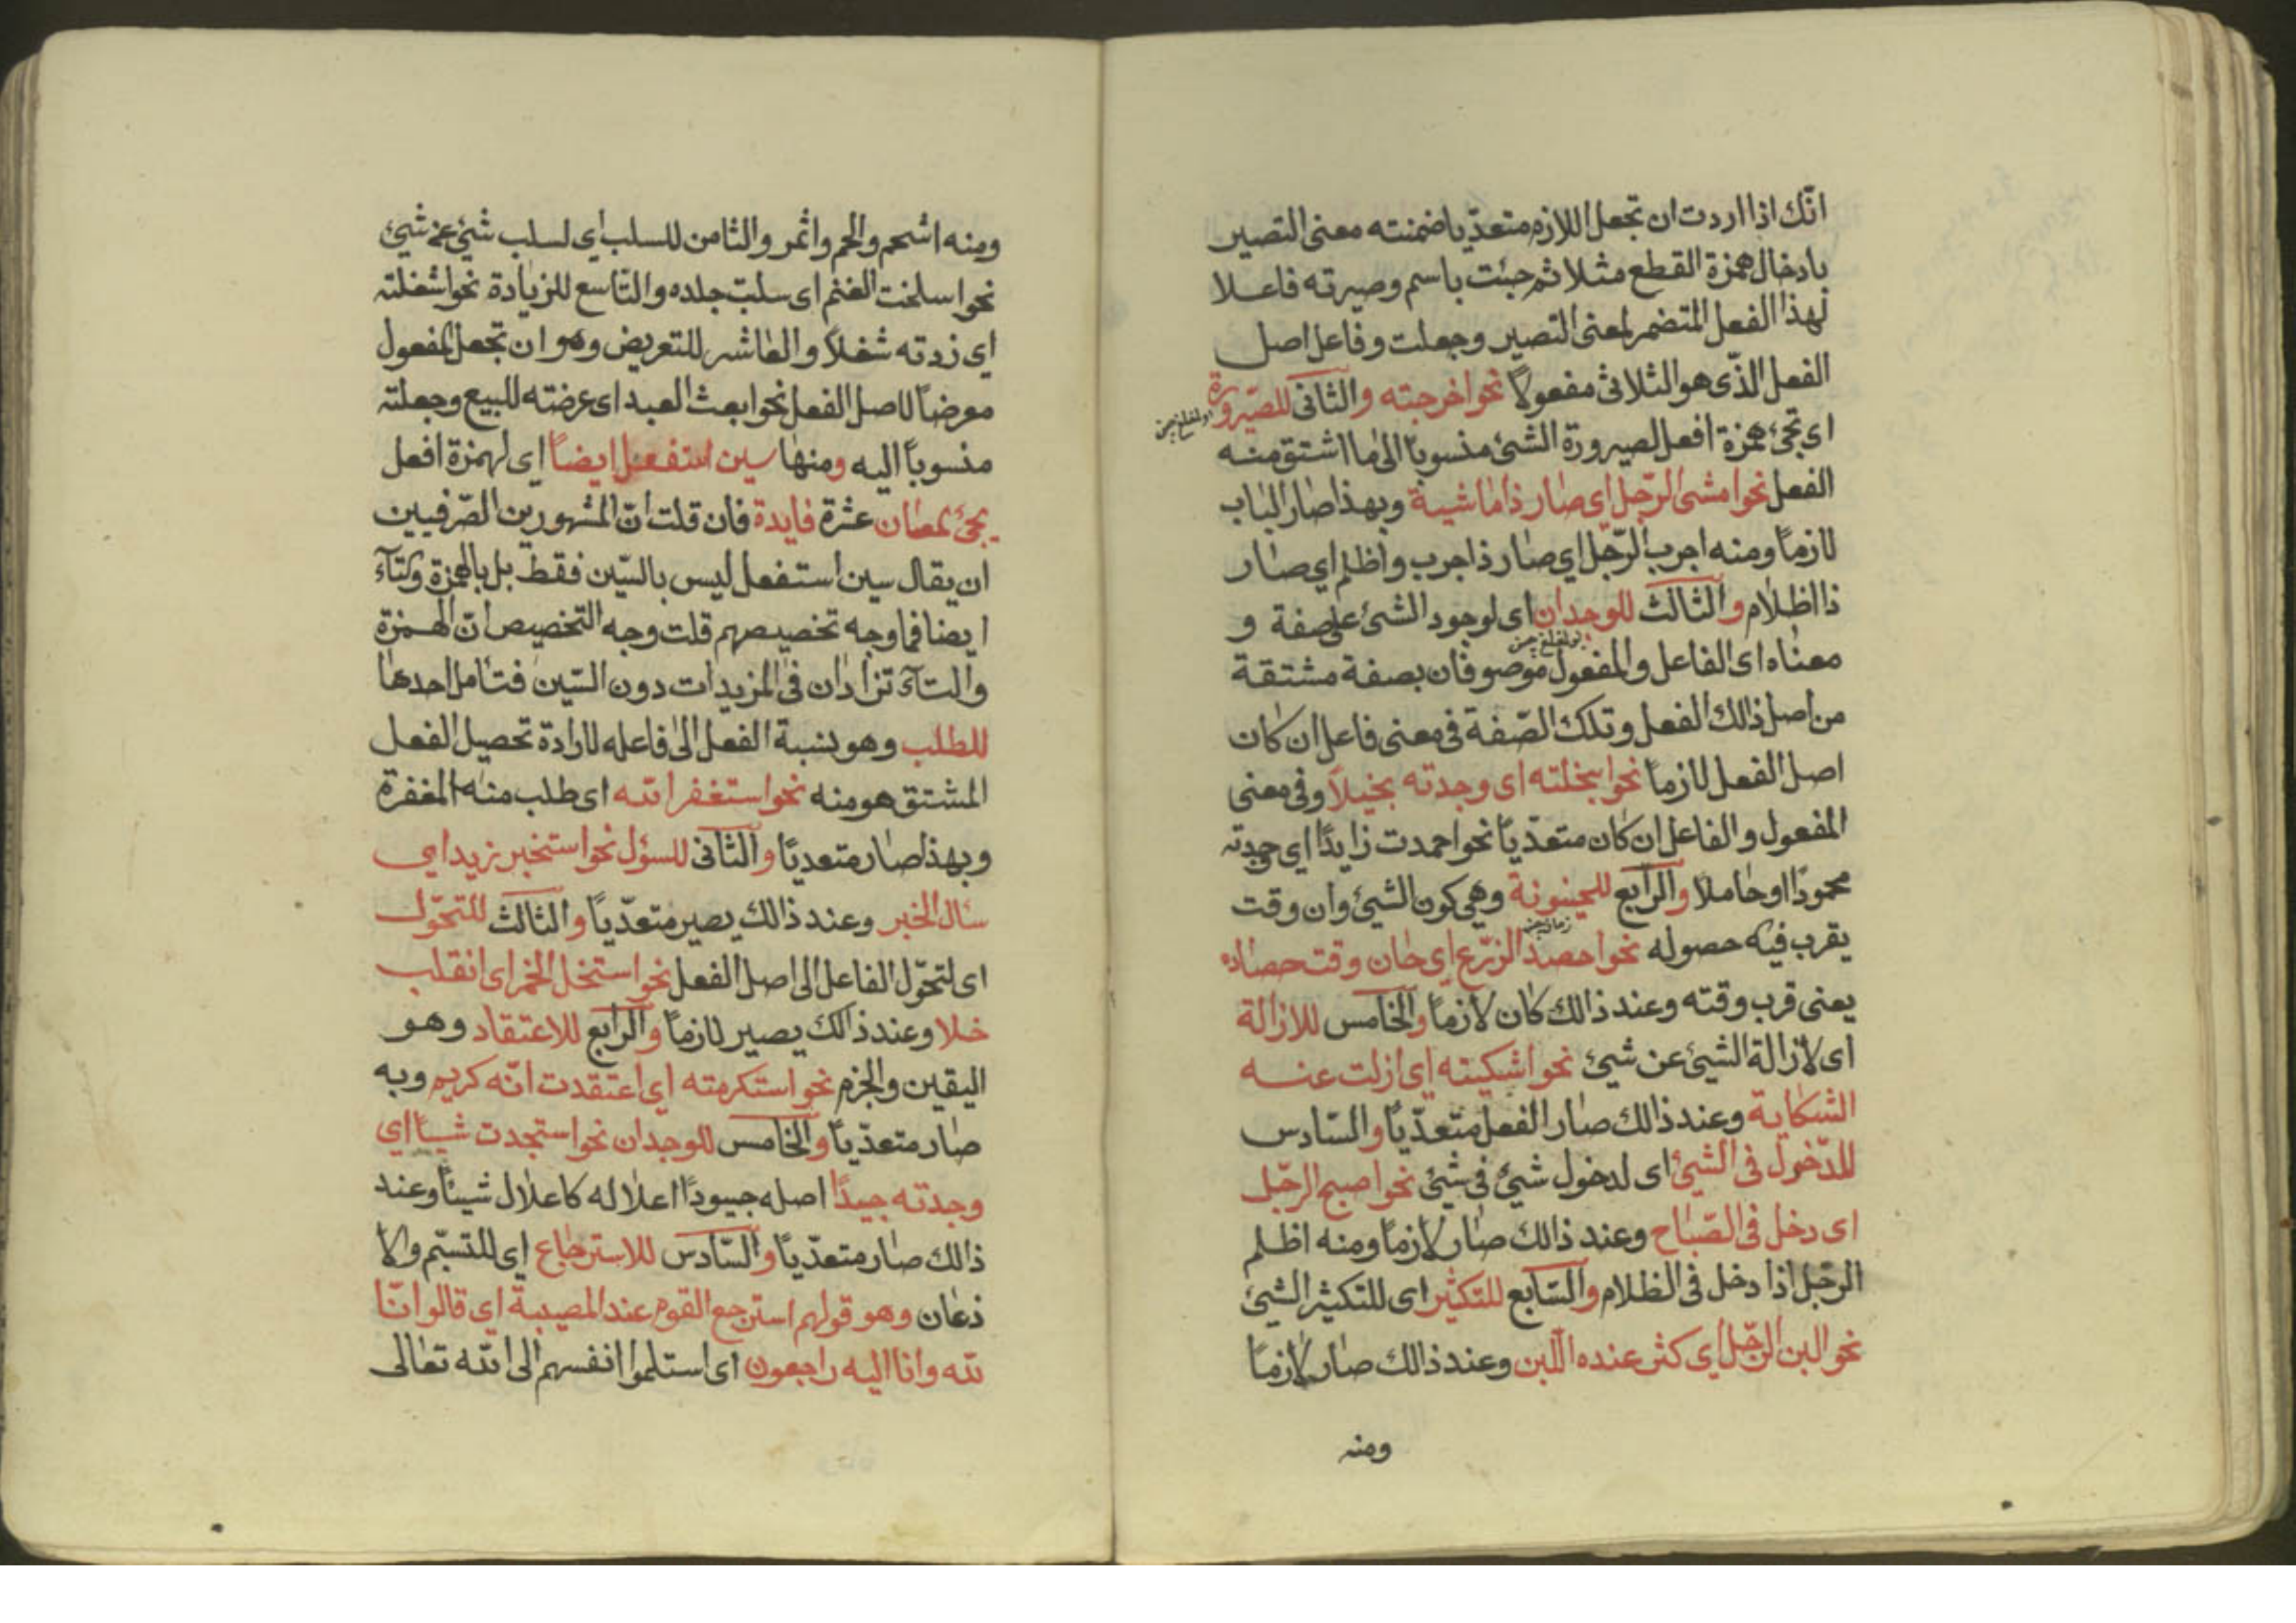 انّك اذا اردت ان تجعل اللازم متعدّيا ضمنته معنى التصيير
بادخال همزة القطع مثلا ثم جئت باسم وصيرته فاعلا
لهذا الفعل المتضمر لمعنى التصيير وجعلت وفاعل اصل
الفعل الذّى هو الثلاثى مفعولاً نحو اخرجته والثانى للصّيرورة
اى تجئ همزة افعل لصيرورة الشئ منسوبا الى ما اشتق منه
الفعل نحو امشى الرّجل اى صار ذا ماشية وبهذا صار الباب
لازماً ومنه اجرب الرّجل اى صار ذا جرب واظلم اى صار
ذا اظلام والثالث للوجدان اى لوجود الشئ على صفة و
معناه اى الفاعل والمفعول موصوفان بصفة مشتقة
من اصل ذالك الفعل وتلك الصّفة فى معنى فاعل ان كان
اصل الفعل لازماً نحو ابخلته اى وجدته بخيلاً وفى معنى
المفعول والفاعل ان كان متعدّياً نحو احمدت زايدًا اى وجدته
محمودًا او حاملا والرّابع للحينونة وهى كون الشئ وان وقت
يقرب فيه حصوله نحو احصد الزّرع اى حان وقت حصاده
يعنى قرب وقته وعند ذالك كان لازماً والخامس للازالة
اى لازالة الشيئ عن شيئ نحو اشكيته اى ازلت عنه
الشكاية وعند ذالك صار الفعل متعدّيًا والسّادس
للدّخول فى الشيئ اى لدخول شيئ فى شيئ نحو اصبح الرّجل
اى دخل فى الصّباح وعند ذالك صار لازماً ومنه اظلم
الرّجل اذا دخل فى الظلام والسّابع للتكثير اى للتكثير الشيئ
نحو البن الرّجل اى كثر عنده اللّبن وعند ذالك صار لازماً
ومنه
ومنه اشحم والحم واثمر والثامن للسلب اى لسلب شيئ عن شيئ
نحو اسلخت الغنم اى سلبت جلده والتّاسع للزيادة نحو اشغلته
اى زدته شغلاً والعاشر للتعريض وهو ان تجعل المفعول
معرضاً لاصل الفعل نحو ابعث العبد اى عرضته للبيع وجعلته
منسوباً اليه ومنها سين استفعل ايضاً اى لهمزة افعل
يجئ لمعان عشرة فايدة فان قلت انّ المشهور بين الصّرفيين
ان يقال سين استفعل ليس بالسّين فقط بل بالهمزة والتآء
ايضا فما وجه تخصيصهم قلت وجه التخصيص انّ الهمزة
والتآء تزادان فى المزيدات دون السّين فتامل احدها
للطلب وهو نسبة الفعل الى فاعله لارادة تحصيل الفعل
المشتق هو منه نحو استغفر الله اى طلب منه المغفرة
وبهذا صار متعديًا والثانى للسؤل نحو استخبر زيد اى
سئال الخبر وعند ذالك يصير متعدّياً والثالث للتحّول
اى لتحّول الفاعل الى اصل الفعل نحو استخل الخمر اى انقلب
خلا وعند ذالك يصير لازماً والرّابع للاعتقاد وهو
اليقين والجزم نحو استكرمته اى اعتقدت انّه كريم وبه
صار متعدّياً والخامس للوجدان نحو استجدت شيئاً اى
وجدته جيدًا اصله جيودًا اعلاله كاعلال شيئاً وعند
ذالك صار متعدّياً والسّادس للاسترجاع اى للتسّيم والا
ذعان وهو قولهم استرجع القوم عند المصيبة اى قالوا انّا
لله وانا اليه راجعون اى استلموا انفسهم الى الله تعالى